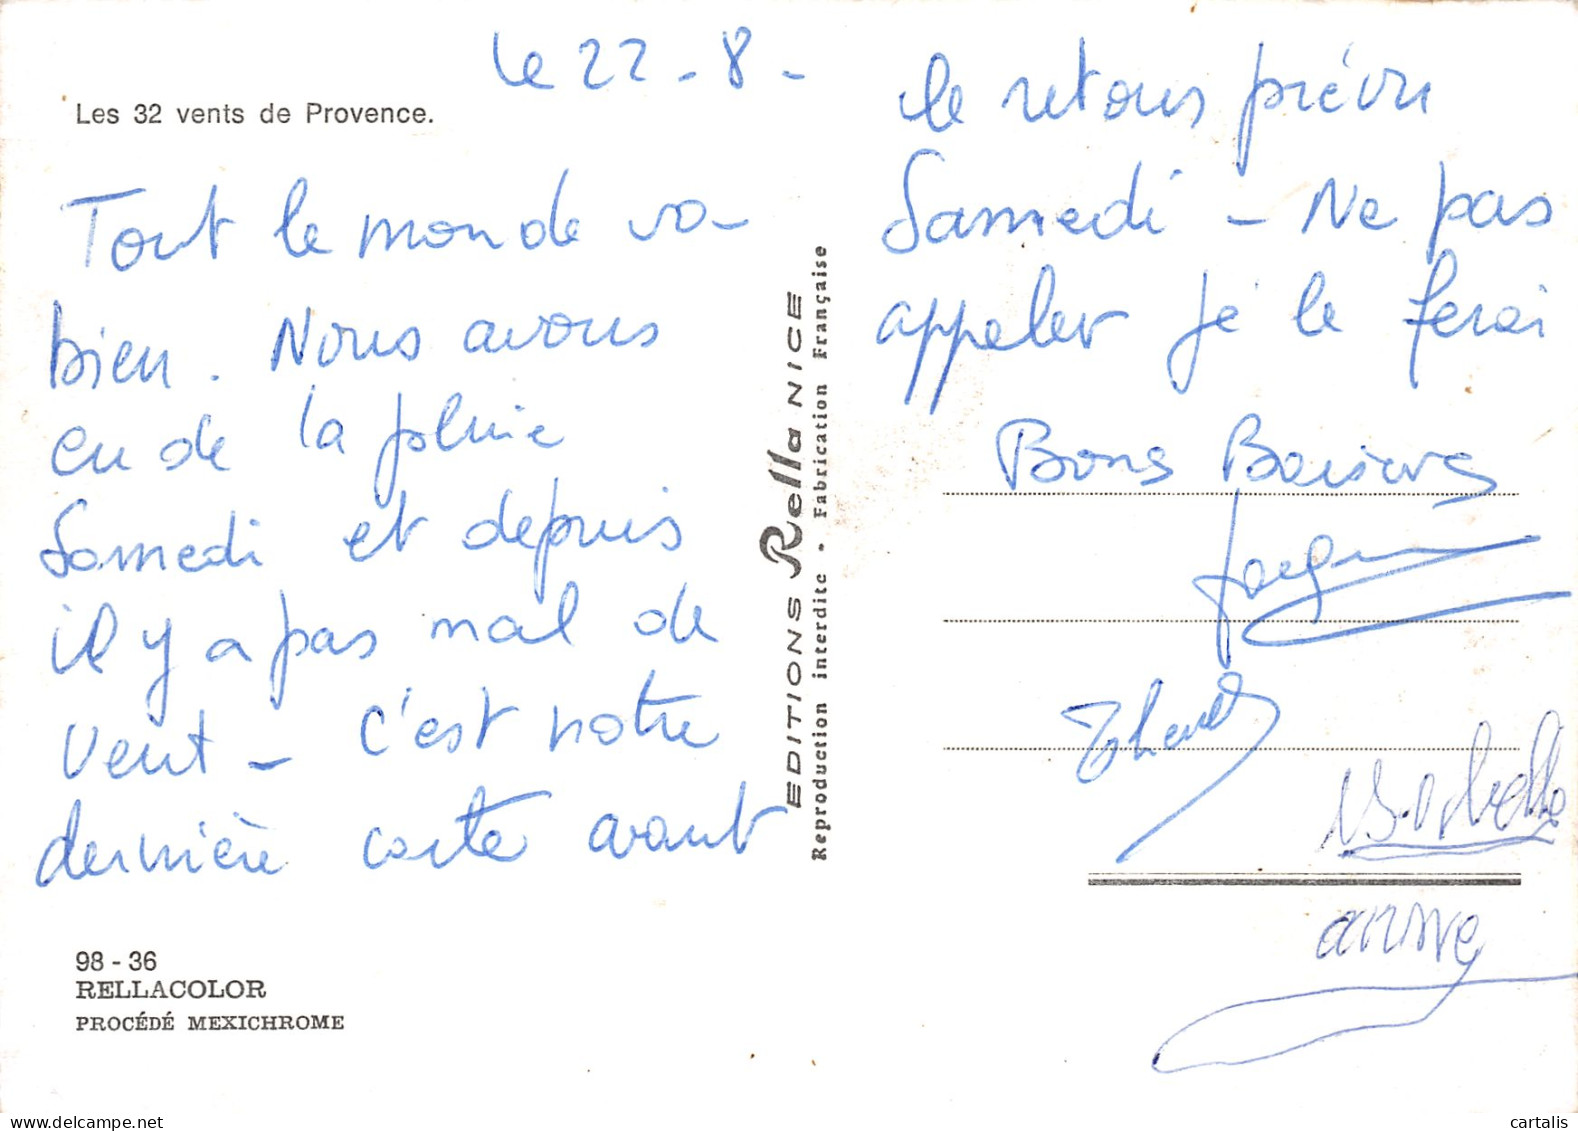 le 22 - 8 -
Les 32 vents de Provence.
Tout le monde va
bien. Nous avons
eu de la pluie
Samedi et depuis
il y a pas mal de
vent - c'est notre
dernière carte avant
98 - 36
RELLACOLOR
PROCÉDÉ MEXICHROME
EDITIONS Rella NICE
Reproduction interdite - Fabrication Française
le retour prévu
Samedi - Ne pas
appeler je le ferai
Bons Baisers
cartalis